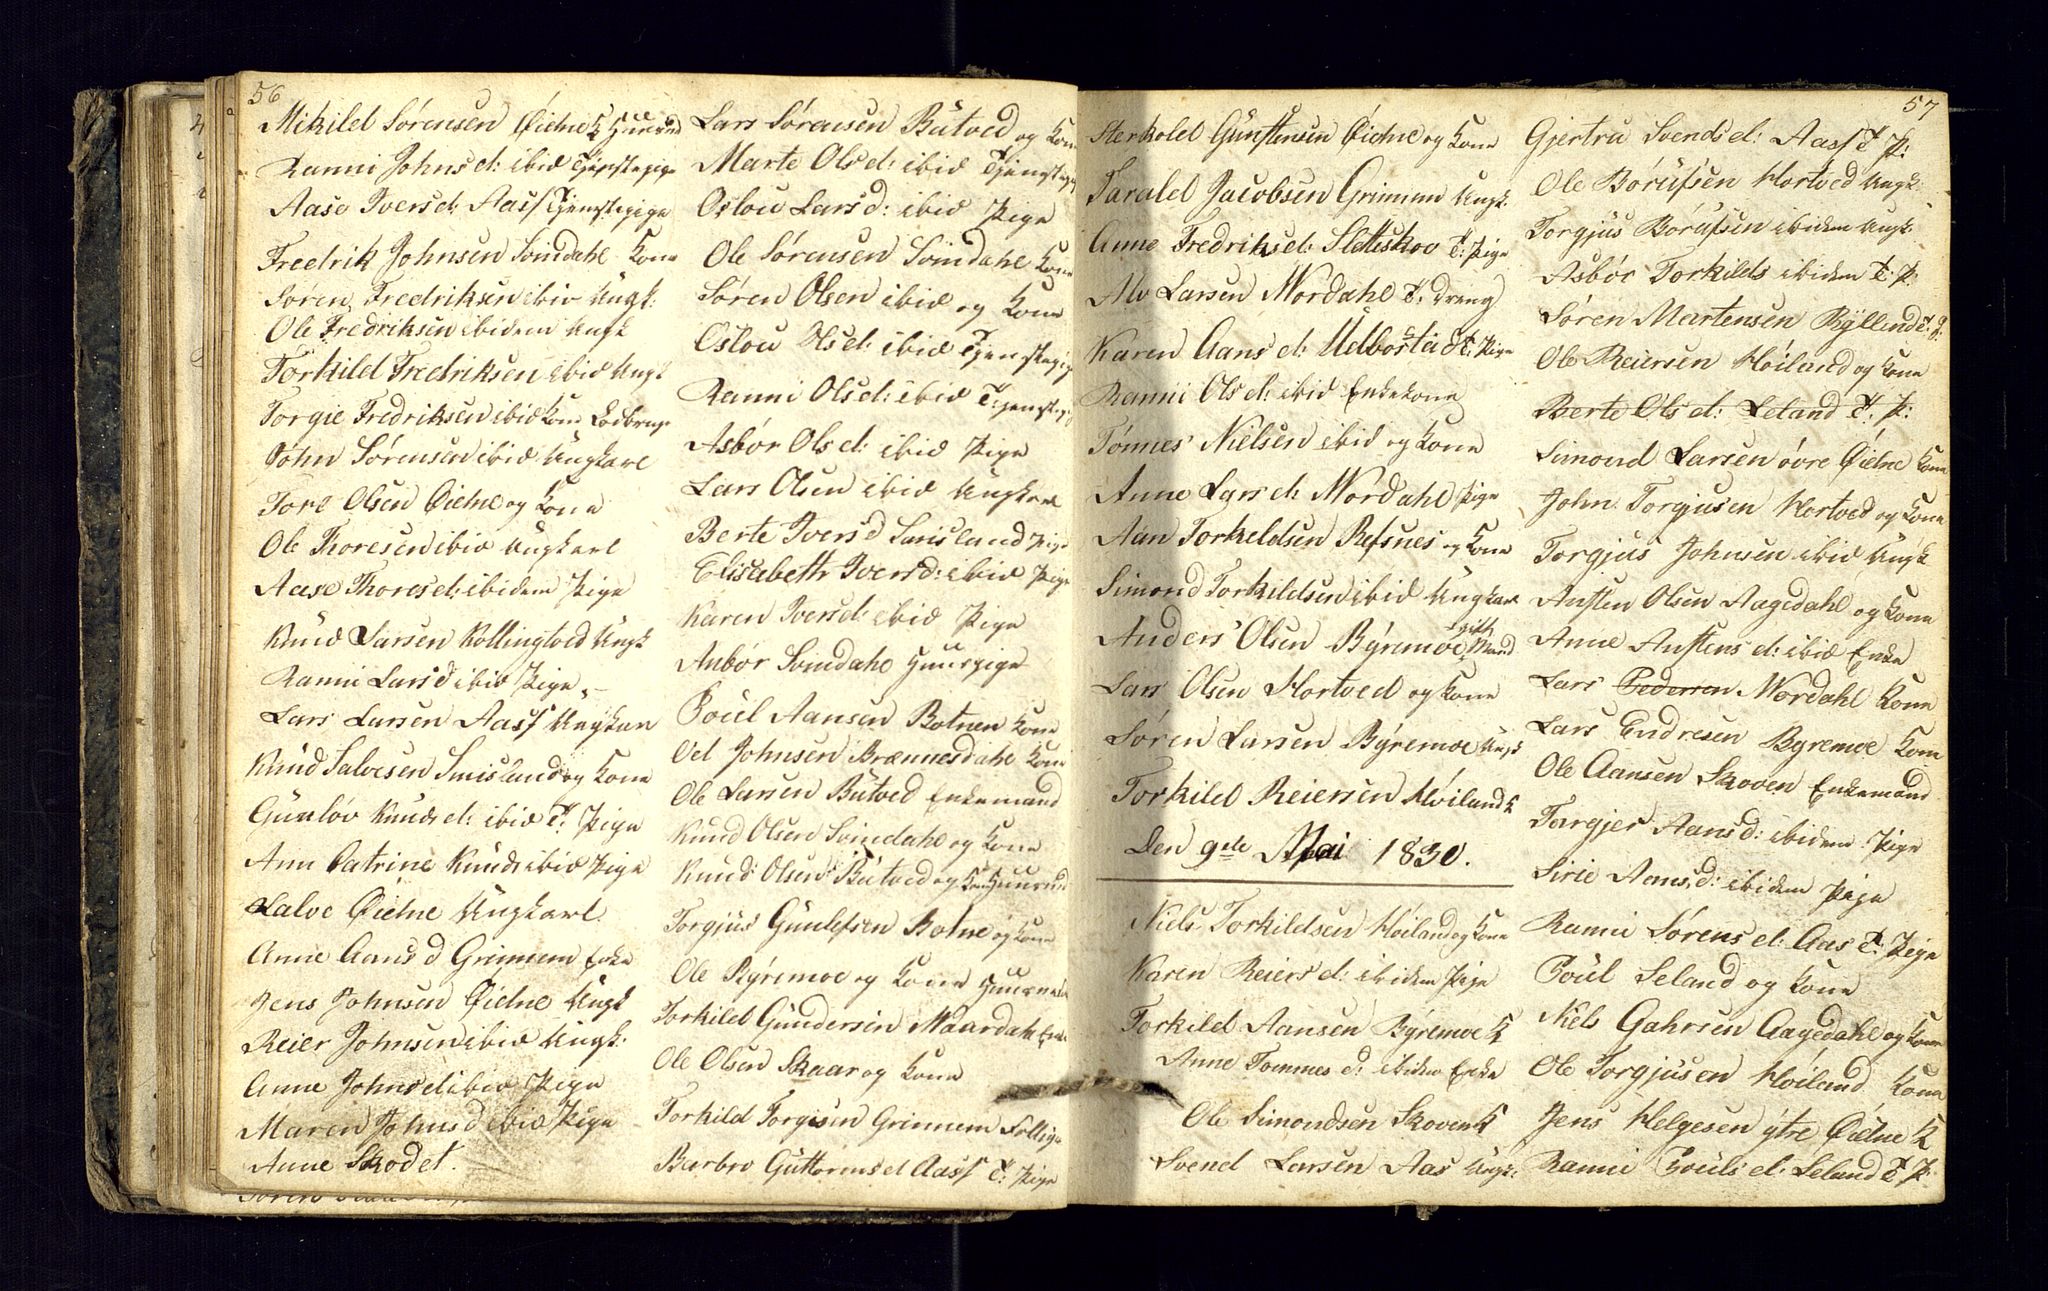 56
Mikilel Sørensen Øidne K Huusm
Ranni Johnsd: ibid Tjenstepige
Aase Iversd: Aass Tjenstepige
Fredrik Johnsen Svindahl Kone
Søren Fredriksen ibid Ungk:
Ole Fredriksen ibidem Ungk
Torkild Fredriksen ibid Ungk
Torgie Fredriksen ibid Kone
John Sørensen ibid Ungkarl
Tore Olsen Øidne og Kone
Ole Thoresen ibid Ungkarl
Aase Thoresd: ibidem Pige
Knud Larsen Kollingtved Ungk
Ranni Larsd ibid Pige
Lars Larsen Aass Ungkar
Knud Salvesen Smisland og Kone
Gunløv Knudsd: ibid T: Pige
Ann Catrine Knuds ibid Pige
Salve Øidne Ungkarl
Anne Aansd Grimem Enke
Jens Johnsen Øidne Ungk
Reier Johnsen ibid Ungk:
Anne Johnsd ibid Pige
Maren Johnsd ibid Pige
Anne Skodet.
Lars Sørensen Butved og Kone
Marte Olsd: ibid Tjenstepig
Oslou Larsd: ibid Pige
Ole Sørensen Svindahl Kone
Søren Olsen ibid og Kone
Oslou Olsd: ibid Tjenstepige
Ranni Olsd: ibid Tjenstepig
Asbør Olsd: ibid Pige
Lars Olsen ibid Ungkarl
Berte Iversd Smisland Pige
Elisabeth Iversd: ibid Pige
Karen Iversd: ibid Pige
Anbør Svindahl Huuspige
Poul Aansen Botnen Kone
Od Johnsen Brænnesdahl Kone
Ole Larsen Butved Enkemand
Knud Olsen Svindahl og Kone
Knud Olsen Butved og Kone Huusmd
Torgius Gunlefsen Botne og Kone
Ole Byremoe og Kone Huusm
Torkild Gundersen Maardahl Enk
Ole Olsen Skaar og Kone
Torkild Torgisen Grimem
Barbro Guttormsd Aass T: Pige
57
Sterkold Gunstensen Øidne og Kone
Tarald Jacobsen Grimem Ungk.
Anne Fredriksd: Sletteskov T: Pige
Alv Larsen Nordahl T: Dreng
Karen Aansd: Udbostad T: Pige
Ranni Olsd: ibid Enkekone
Tønnes Nielsen ibid og Kone
Anne Larsd: Nordahl Pige
Aan Torkeldsen Refsnes og Kone
Simond Torkildsen ibid Ungkarl
Anders Olsen Byremoe gift Mand
Lars Olsen Hortved og Kone
Søren Larsen Byremoe Ungk
Torkild Reiersen Høiland K
Den 9de Mai 1830.
Niels Torkildsen Høiland og Kone
Karen Reiersd: ibidem Pige
Torkild Aansen Byremoe K
Anne Tommesd: ibidem Enke
Ole Simondsen Skoven K
Svend Larsen Aas Ungk:
Gjertru Svendsd: Aass T P:
Ole Børufsen Hortved Ungk:
Torgjus Børufsen ibidem Ungk:
Asbør Torkilds ibidem T: P:
Søren Martensen Ryllend T: J:
Ole Reiersen Høiland og Kone
Berte Olsd: Leland T: P:
Simond Larsen øvre Øidne Kone
John Torgjusen Hortved og Kone
Torgjus Johnsen ibid Ungk
Austen Olsen Aagedahl og Kone
Anne Austensd: ibid Enke
Lars Pedersen Nordahl Kone
Lars Endresen Byremoe Kone
Ole Aansen Skoven Enkemand
Torgjer Aansd: ibidem Pige
Sirie Aansd: ibidem Pige
Ranni Sørensd: Aas T: Pige
Poul Seland og Kone
Niels Gahrsen Aagedahl og Kone
Ole Torgjusen Høiland Kone
Jens Helgesen ytre Øidne K
Ranni Poulsd: Leland T: P: